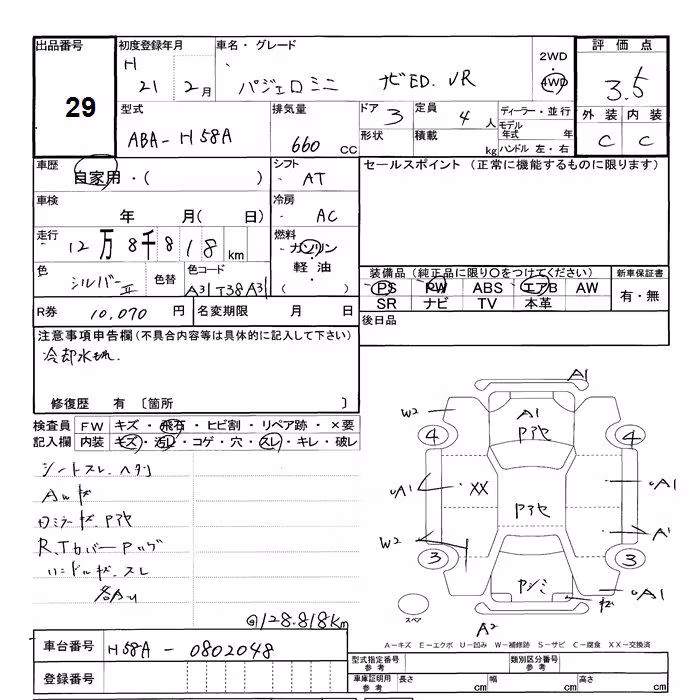 出品番号
29
初度登録年月
H
21 2月
車名・グレード
パジェロミニ ナビED. VR
2WD
4WD
評価点
3.5
外装 内装
C C
型式
ABA-H58A
排気量
660 CC
ドア 3
形状
定員 4 人
積載 kg
ディーラー・並行
モデル年式 年
ハンドル 左・右
車歴
自家用・( )
シフト
AT
車検
年 月( 日)
冷房
AC
走行
12万8千818 km
燃料
ガソリン
・
軽油
( )
色
シルバーⅡ
色替
色コード
A31T38A31
R券 10,070 円
名変期限 月 日
セールスポイント (正常に機能するものに限ります)
装備品(純正品に限り○をつけてください)
PS PW ABS エアB AW
SR ナビ TV 本革
新車保証書
有・無
後日品
注意事項申告欄(不具合内容等は具体的に記入して下さい)
冷却水もれ.
修復歴 有 〔箇所 〕
検査員記入欄
FW キズ・飛石・ヒビ割・リペア跡・×要
内装 キズ・汚レ・コゲ・穴・スレ・キレ・破レ
シートスレ. ヘタリ
R,Tカバー
ハンドルキズ.スレ
各AU
128.818km
A1
W2
A1
Pアセ
4
4
A1
XX
Pアセ
A1
A1
W2
3
3
Pシミ
A1
キズ
スペア
A2
A-キズ E-エクボ U-凹み W-補修跡 S-サビ C-腐食 XX-交換済
車台番号 H58A - 0802048
登録番号
型式指定番号 参考
類別区分番号 参考
車庫証明用 参考
長さ cm 幅 cm 高さ cm